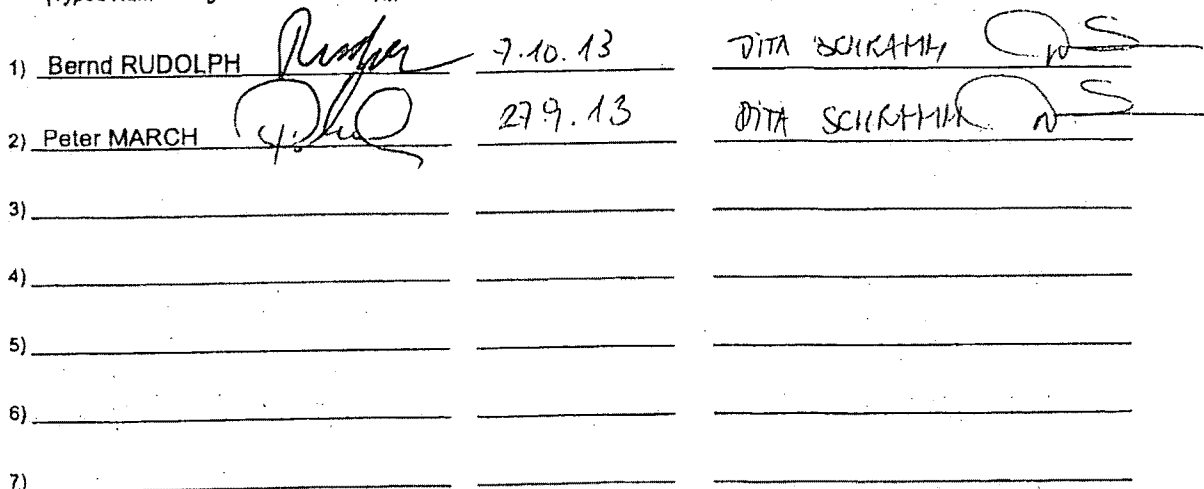 1) Bernd RUDOLPH 7.10.13 DITA SCHRAMM
2) Peter MARCH 27.9.13 DITA SCHRAMM
3)
4)
5)
6)
7)